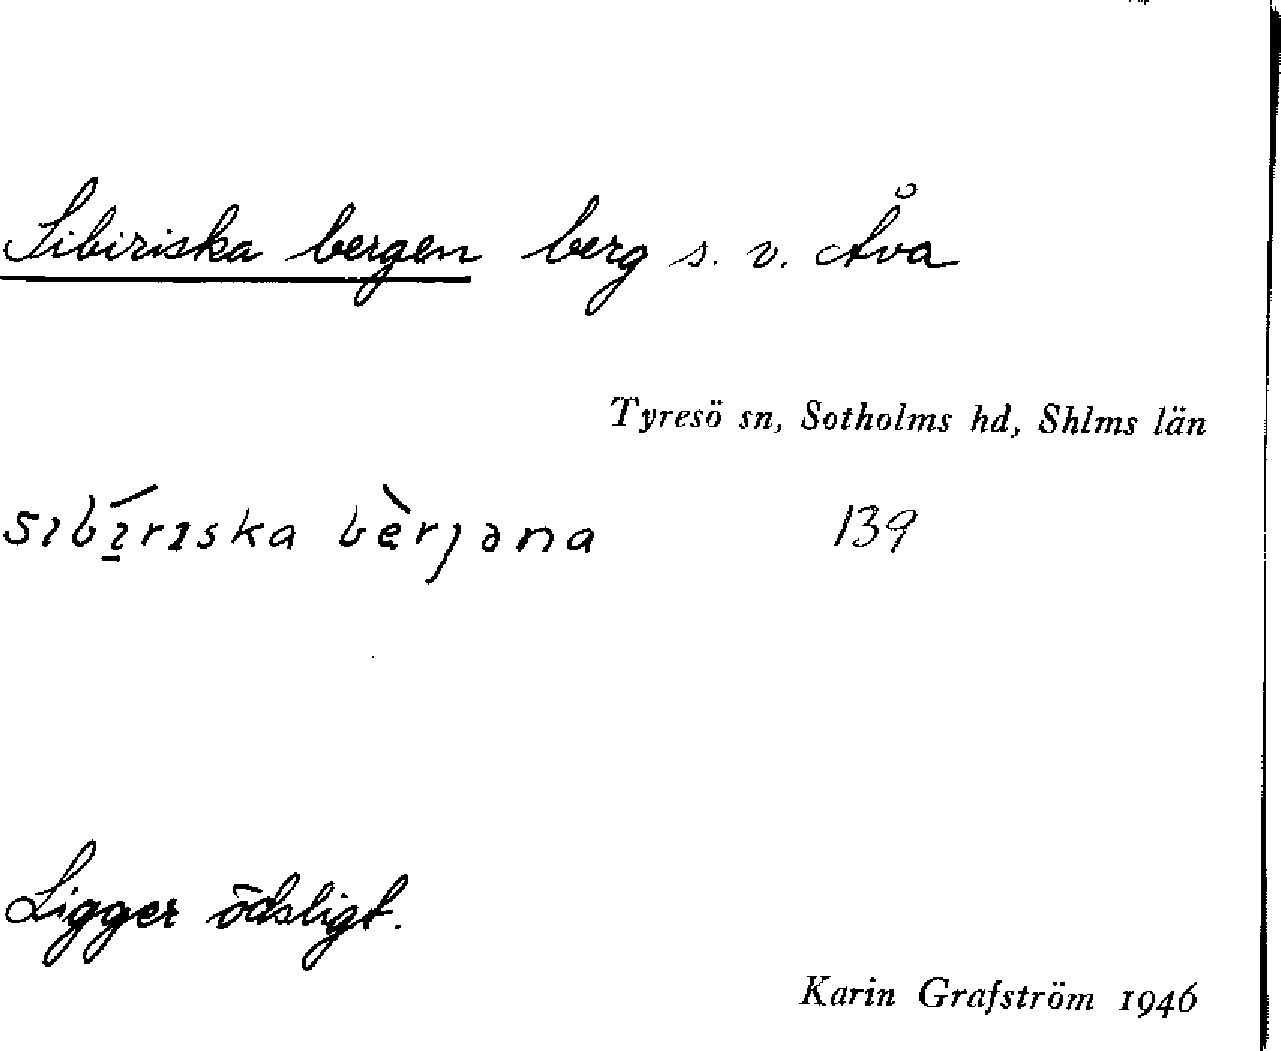 Sibiriska bergen berg s. v. Åva
Tyresö sn, Sotholms hd, Shlms län
sıbí̱rıska bèrjəna 139
Ligger ödsligt.
Karin Grafström 1946